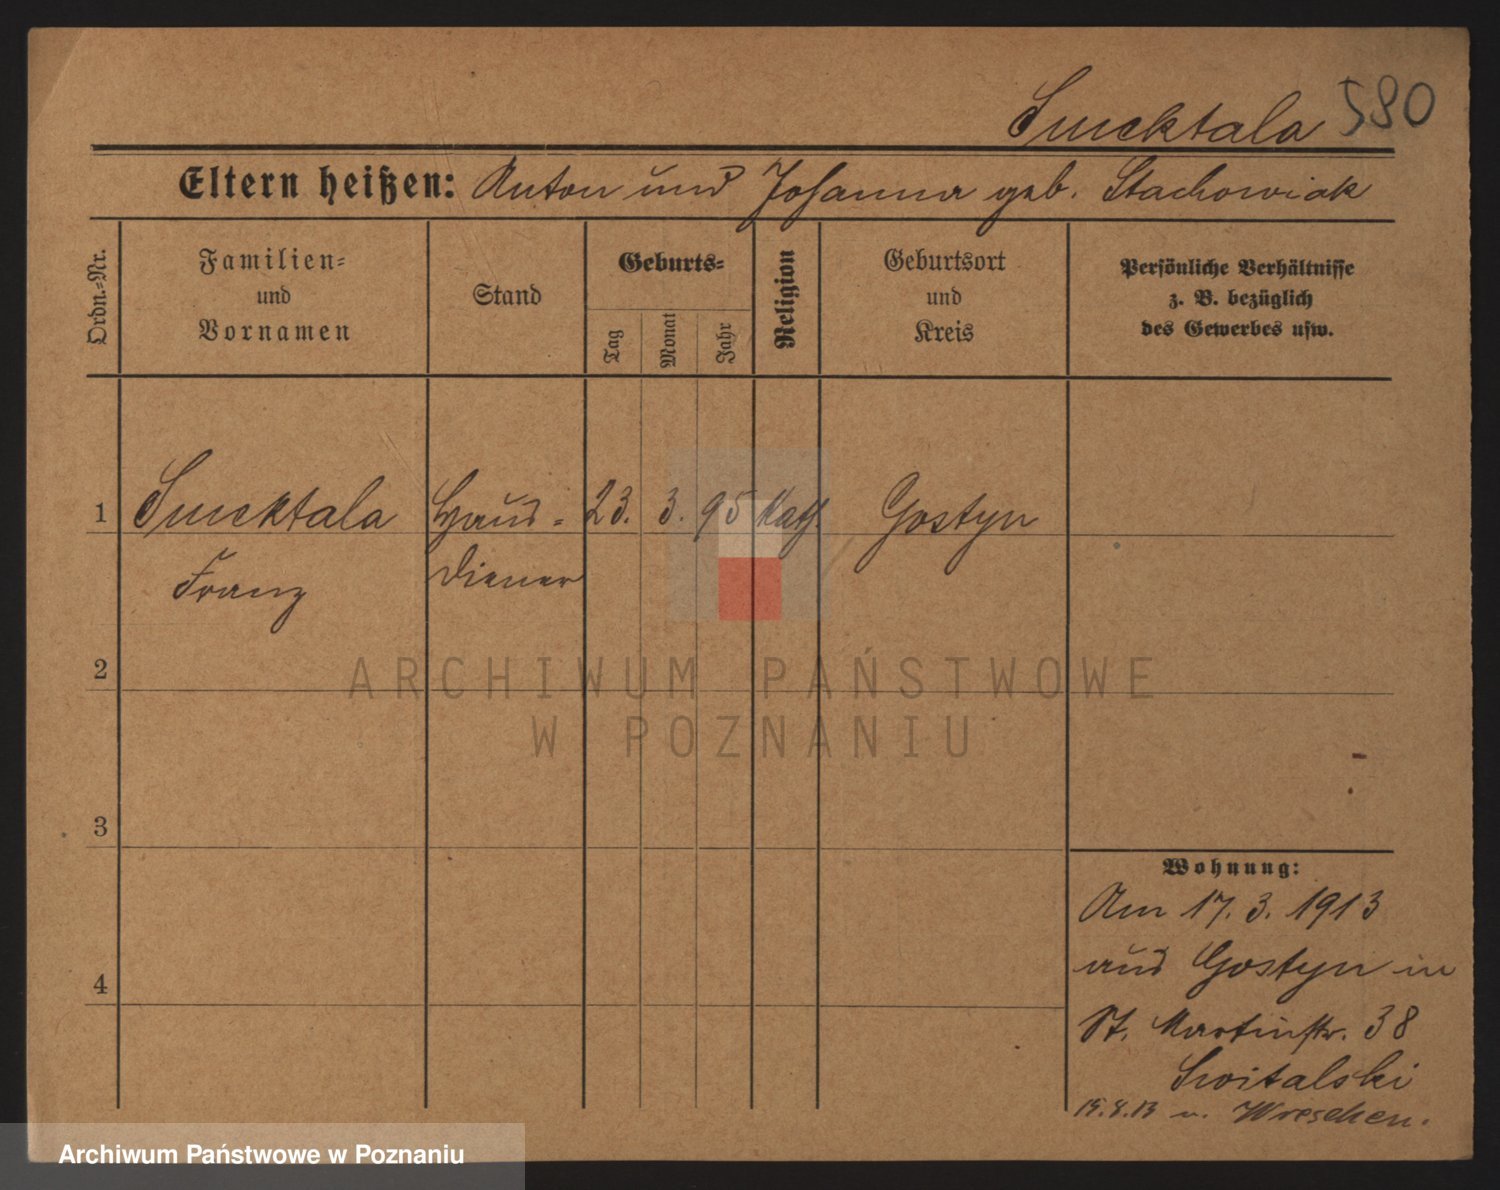 Smektala 580
Eltern heißen: Anton und Johanna geb. Stachowiak
Ordn.-Nr.
Familien-
und
Vornamen
Stand
Geburts-
Tag
Monat
Jahr
Religion
Geburtsort
und
Kreis
Persönliche Verhältnisse
z. B. bezüglich
des Gewerbes usw.
1 Smektala Haus- 23. 3. 95 Kath. Gostyn
Franz diener
2
ARCHIWUM PAŃSTWOWE
W POZNANIU
3
Wohnung:
Am 17. 3. 1913
aus Gostyn in
4
St. Martinstr. 38
Switalski
15.8.13 n. Wreschen.
Archiwum Państwowe w Poznaniu